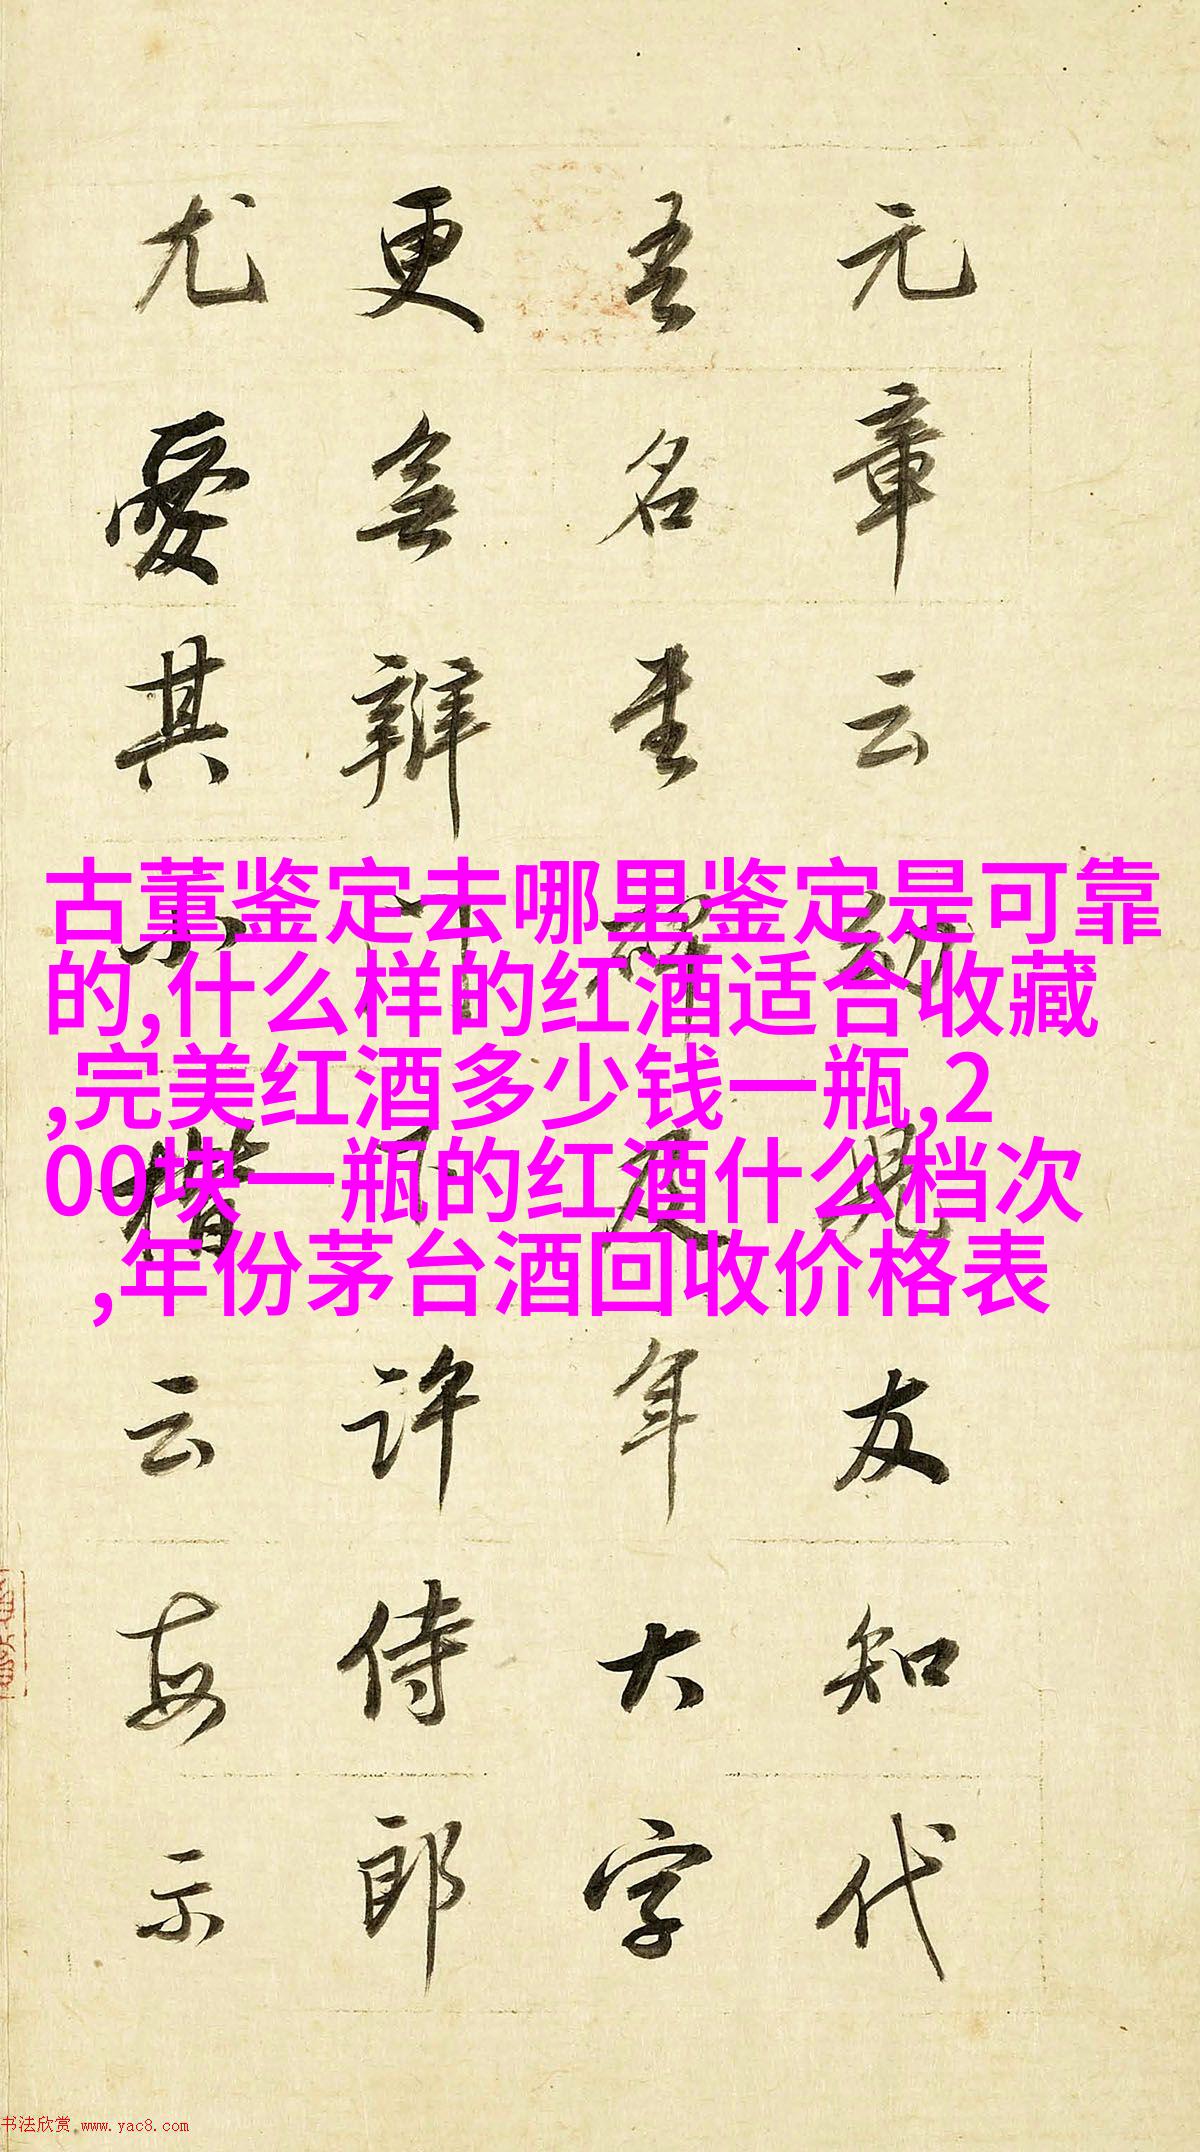 元章云幼兒友知代
吾名書碑及年大字
更無辨門下許侍郎
尤愛其小楷云每示
古董鉴定去哪里鉴定是可靠
的,什么样的红酒适合收藏
,完美红酒多少钱一瓶,2
00块一瓶的红酒什么档次
,年份茅台酒回收价格表
书法欣赏.www.yac8.com